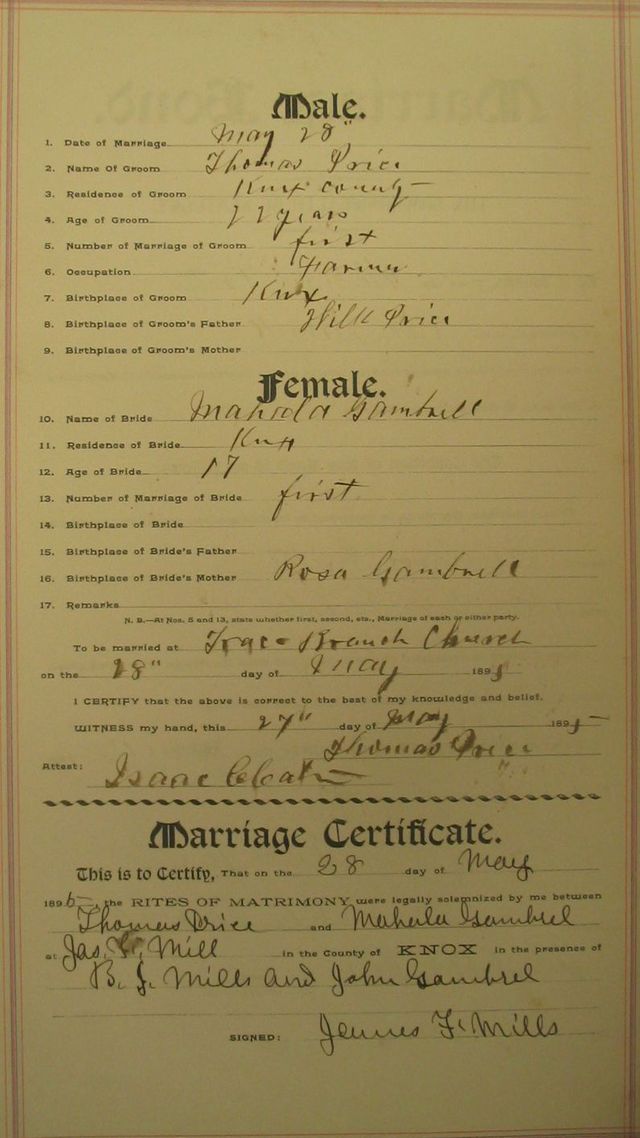 Male.
1. Date of Marriage May 28"
2. Name Of Groom Thomas Price
3. Residence of Groom Knox County
4. Age of Groom 22 years
5. Number of Marriage of Groom first
6. Occupation Farmer
7. Birthplace of Groom Knox
8. Birthplace of Groom's Father Will Price
9. Birthplace of Groom's Mother
Female.
10. Name of Bride Mahala Gambrell
11. Residence of Bride Knox
12. Age of Bride 17
13. Number of Marriage of Bride first
14. Birthplace of Bride
15. Birthplace of Bride's Father
16. Birthplace of Bride's Mother Rosa Gambrell
17. Remarks
N. B.—At Nos. 5 and 13, state whether first, second, etc., Marriage of each or either party.
To be married at Branch Church
on the 28" day of May 1895
I CERTIFY that the above is correct to the best of my knowledge and belief.
WITNESS my hand, this 27" day of May 1895
Thomas Price
Attest: Isaac
Marriage Certificate.
This is to Certify, That on the 28 day of May
189 , the RITES OF MATRIMONY were legally solemnized by me between
Thomas Price and Mahala Gambrel
at Jas. F. Mill in the County of KNOX in the presence of
B. J. Mills and John Gambrel
SIGNED: James F. Mills